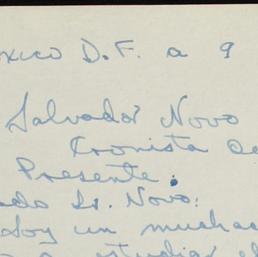 xico D.F. a 9
Salvador Novo
Cronista de
Presente.
ado Sr. Novo:
Soy un muchac
a estudiar el